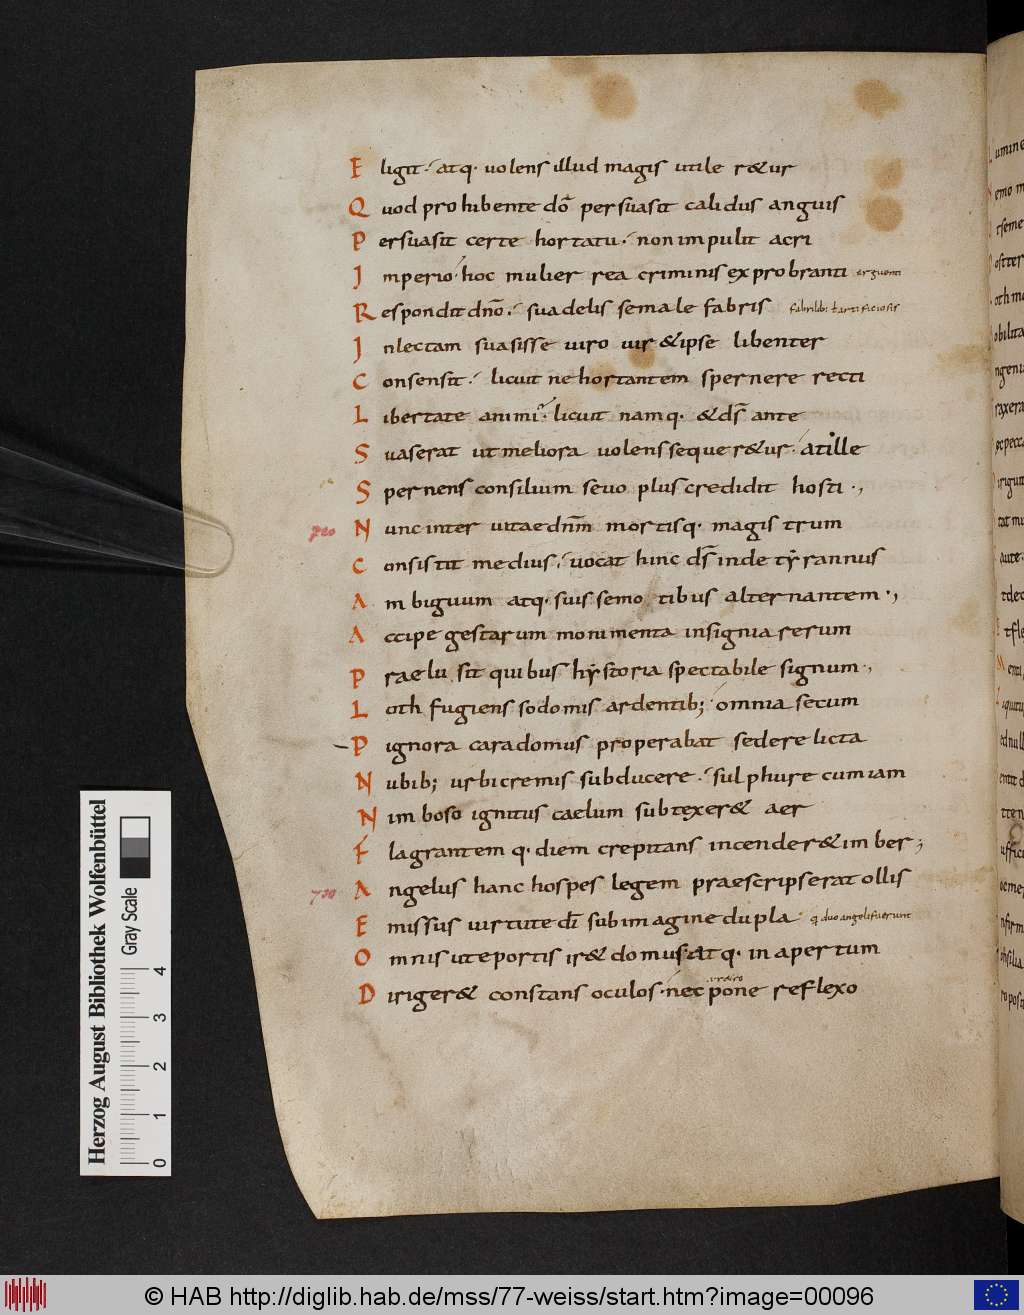 Eligit. atq· uolens illud magis utile r&ur
Quod prohibente dō persuasit calidus anguis
Persuasit certe hortatu. non impulit acri
Jmperio· hoc mulier rea criminis exprobranti arguenti
Respondit dn̄o. suadelis se male fabris fabrilib; ł artificiosis
Jnlectam suasisse uiro uir & ipse libenter
Consensit. licuit ne hortantem spernere recti
Libertate animi· licuit namq· & ds̄ ante
Suaserat ut meliora uolens sequer&ur· at ille
Spernens consilium seuo plus credidit hosti·,
720 Nunc inter uitae dn̄m mortisq· magistrum
Consistit medius, uocat hinc ds̄ inde tẏrannus
Ambiguum atq· suis se motibus alternantem·,
Accipe gestarum monimenta insignia rerum
Praelusit quibus hẏstoria spectabile signum·,
Loth fugiens sodomis ardentib; omnia secum
Pignora cara domus properabat sedere licta
Nubib; urbicremis subducere. sulphure cum iam
Nimboso ignitus caelum subtexer& aer
Flagrantemq· diem crepitans incender& imber;
730 Angelus hanc hospes legem praescripserat ollis
Emissus uirtute dī sub imagine dupla q; duo angeli fuerunt
Omnis ut e portis ir& domus atq· in apertum
Diriger& constans oculos· nec pone reflexo
Herzog August Bibliothek Wolfenbüttel
Gray Scale
0 1 2 3 4
© HAB http://diglib.hab.de/mss/77-weiss/start.htm?image=00096